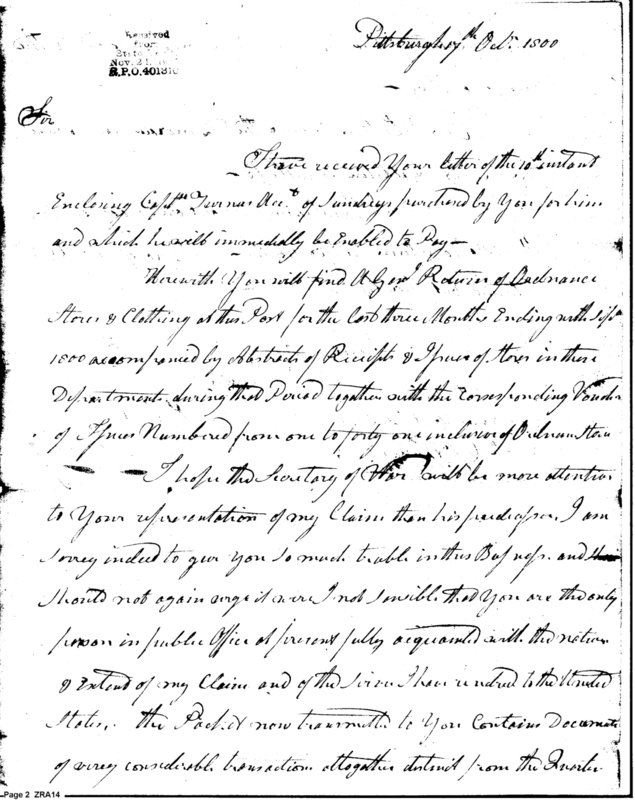 Received
from
State
Nov. 21
R.P.O. 401310
Pittsburgh 17th Octr 1800
Sir
I have received Your letter of the 10th instant
Enclosing Captn Turner Acct of Sundrys purchased by You for him
and which he will immedially be Enabled to Pay —
Herewith You will find A Genl Return of Ordnance
Stores & Clothing at this Post for the last three Months Ending with Sept
1800 accompanied by Abstracts of Receipts & Issues of Stores in these
Departments during that Period together with the Corresponding Voucher
of Issues Numbered from one to forty one inclusive of Ordnan Stores
I hope the Secretary of War will be more attentive
to Your representation of my Claim than his predicessor, I am
sorrey indeed to give you so much trable in this Business and
should not again urge it were I not sensible that You are the only
person in public Office at present fully acquainted with the nature
& Extent of my Claim and of the Service I have rendred to the United
States, the Packet now transmitted to You Contains Documents
of verey considerable transactions altogather distinct from the Quarter
Page 2 ZRA14